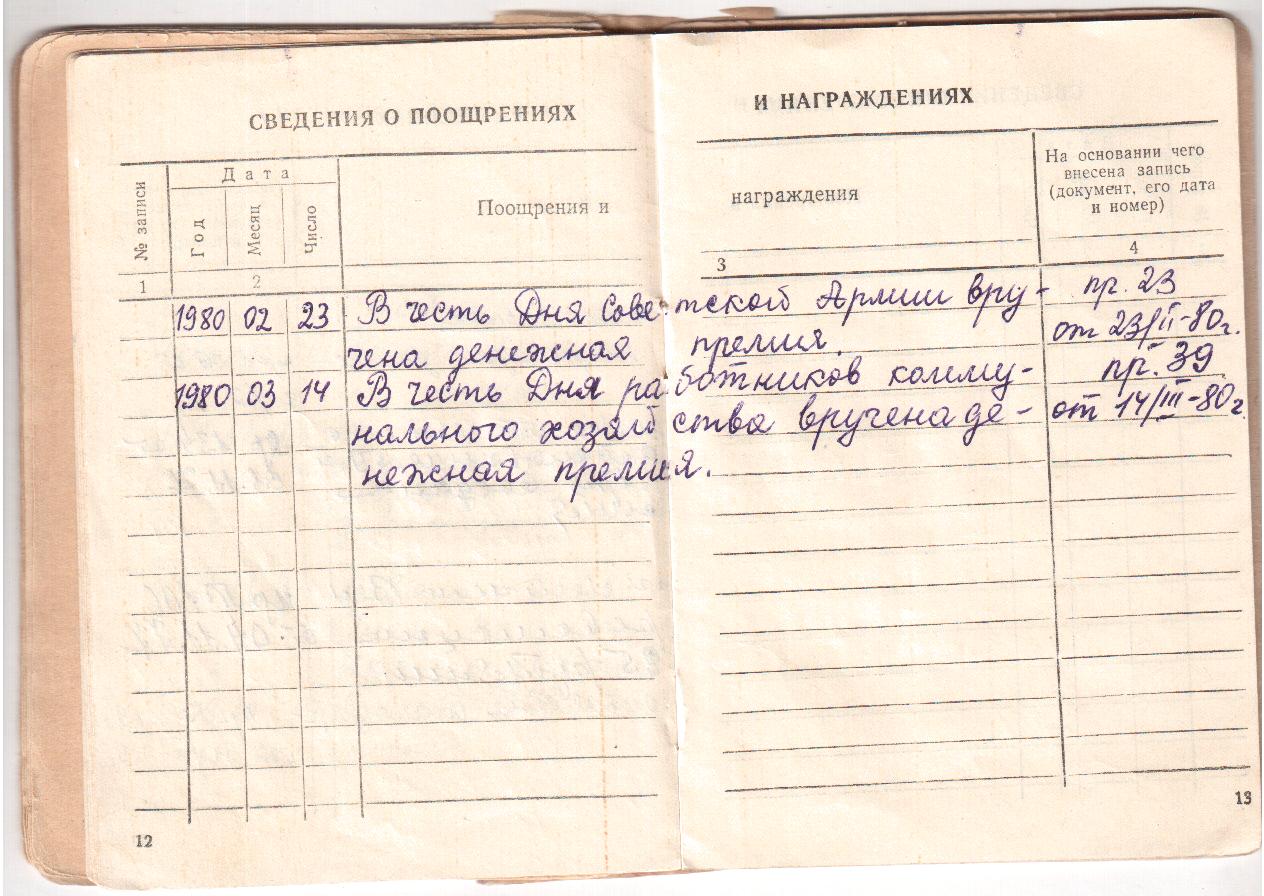 СВЕДЕНИЯ О ПООЩРЕНИЯХ И НАГРАЖДЕНИЯХ
№ записи
Дата
Год
Месяц
Число
Поощрения и награждения
На основании чего
внесена запись
(документ, его дата
и номер)
1 2 3 4
1980 02 23 В честь Дня Советской Армии вру- пр. 23
чена денежная премия. от 23/II-80г.
1980 03 14 В честь Дня работников комму- пр. 39
нального хозяйства вручена де- от 14/III-80г.
нежная премия.
12 13